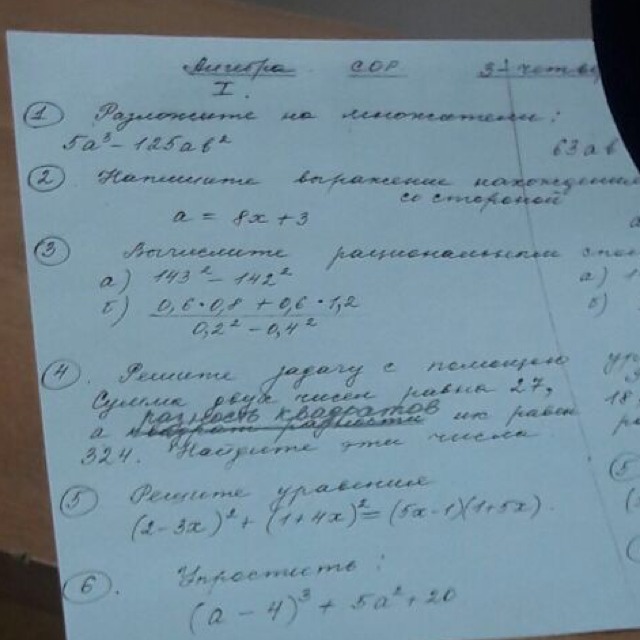 Алгебра СОР 3-я четвер
I.
1 Разложите на множители:
5a³ - 125ab² 63ab
2 Напишите выражение нахождения
со стороной
a = 8x + 3
3 Вычислите рациональным спос
а) 143² - 142² а) 1
б) 0,6 · 0,8 + 0,6 · 1,2 б)
0,2² - 0,4²
4. Решите задачу с помощью ур
Сумма двух чисел равна 27,
а разность квадратов их равна 18
324. Найдите эти числа.
5 Решите уравнение 5
(2-3x)² + (1+4x)² = (5x-1)(1+5x). (
6. Упростить:
(a - 4)³ + 5a² + 20